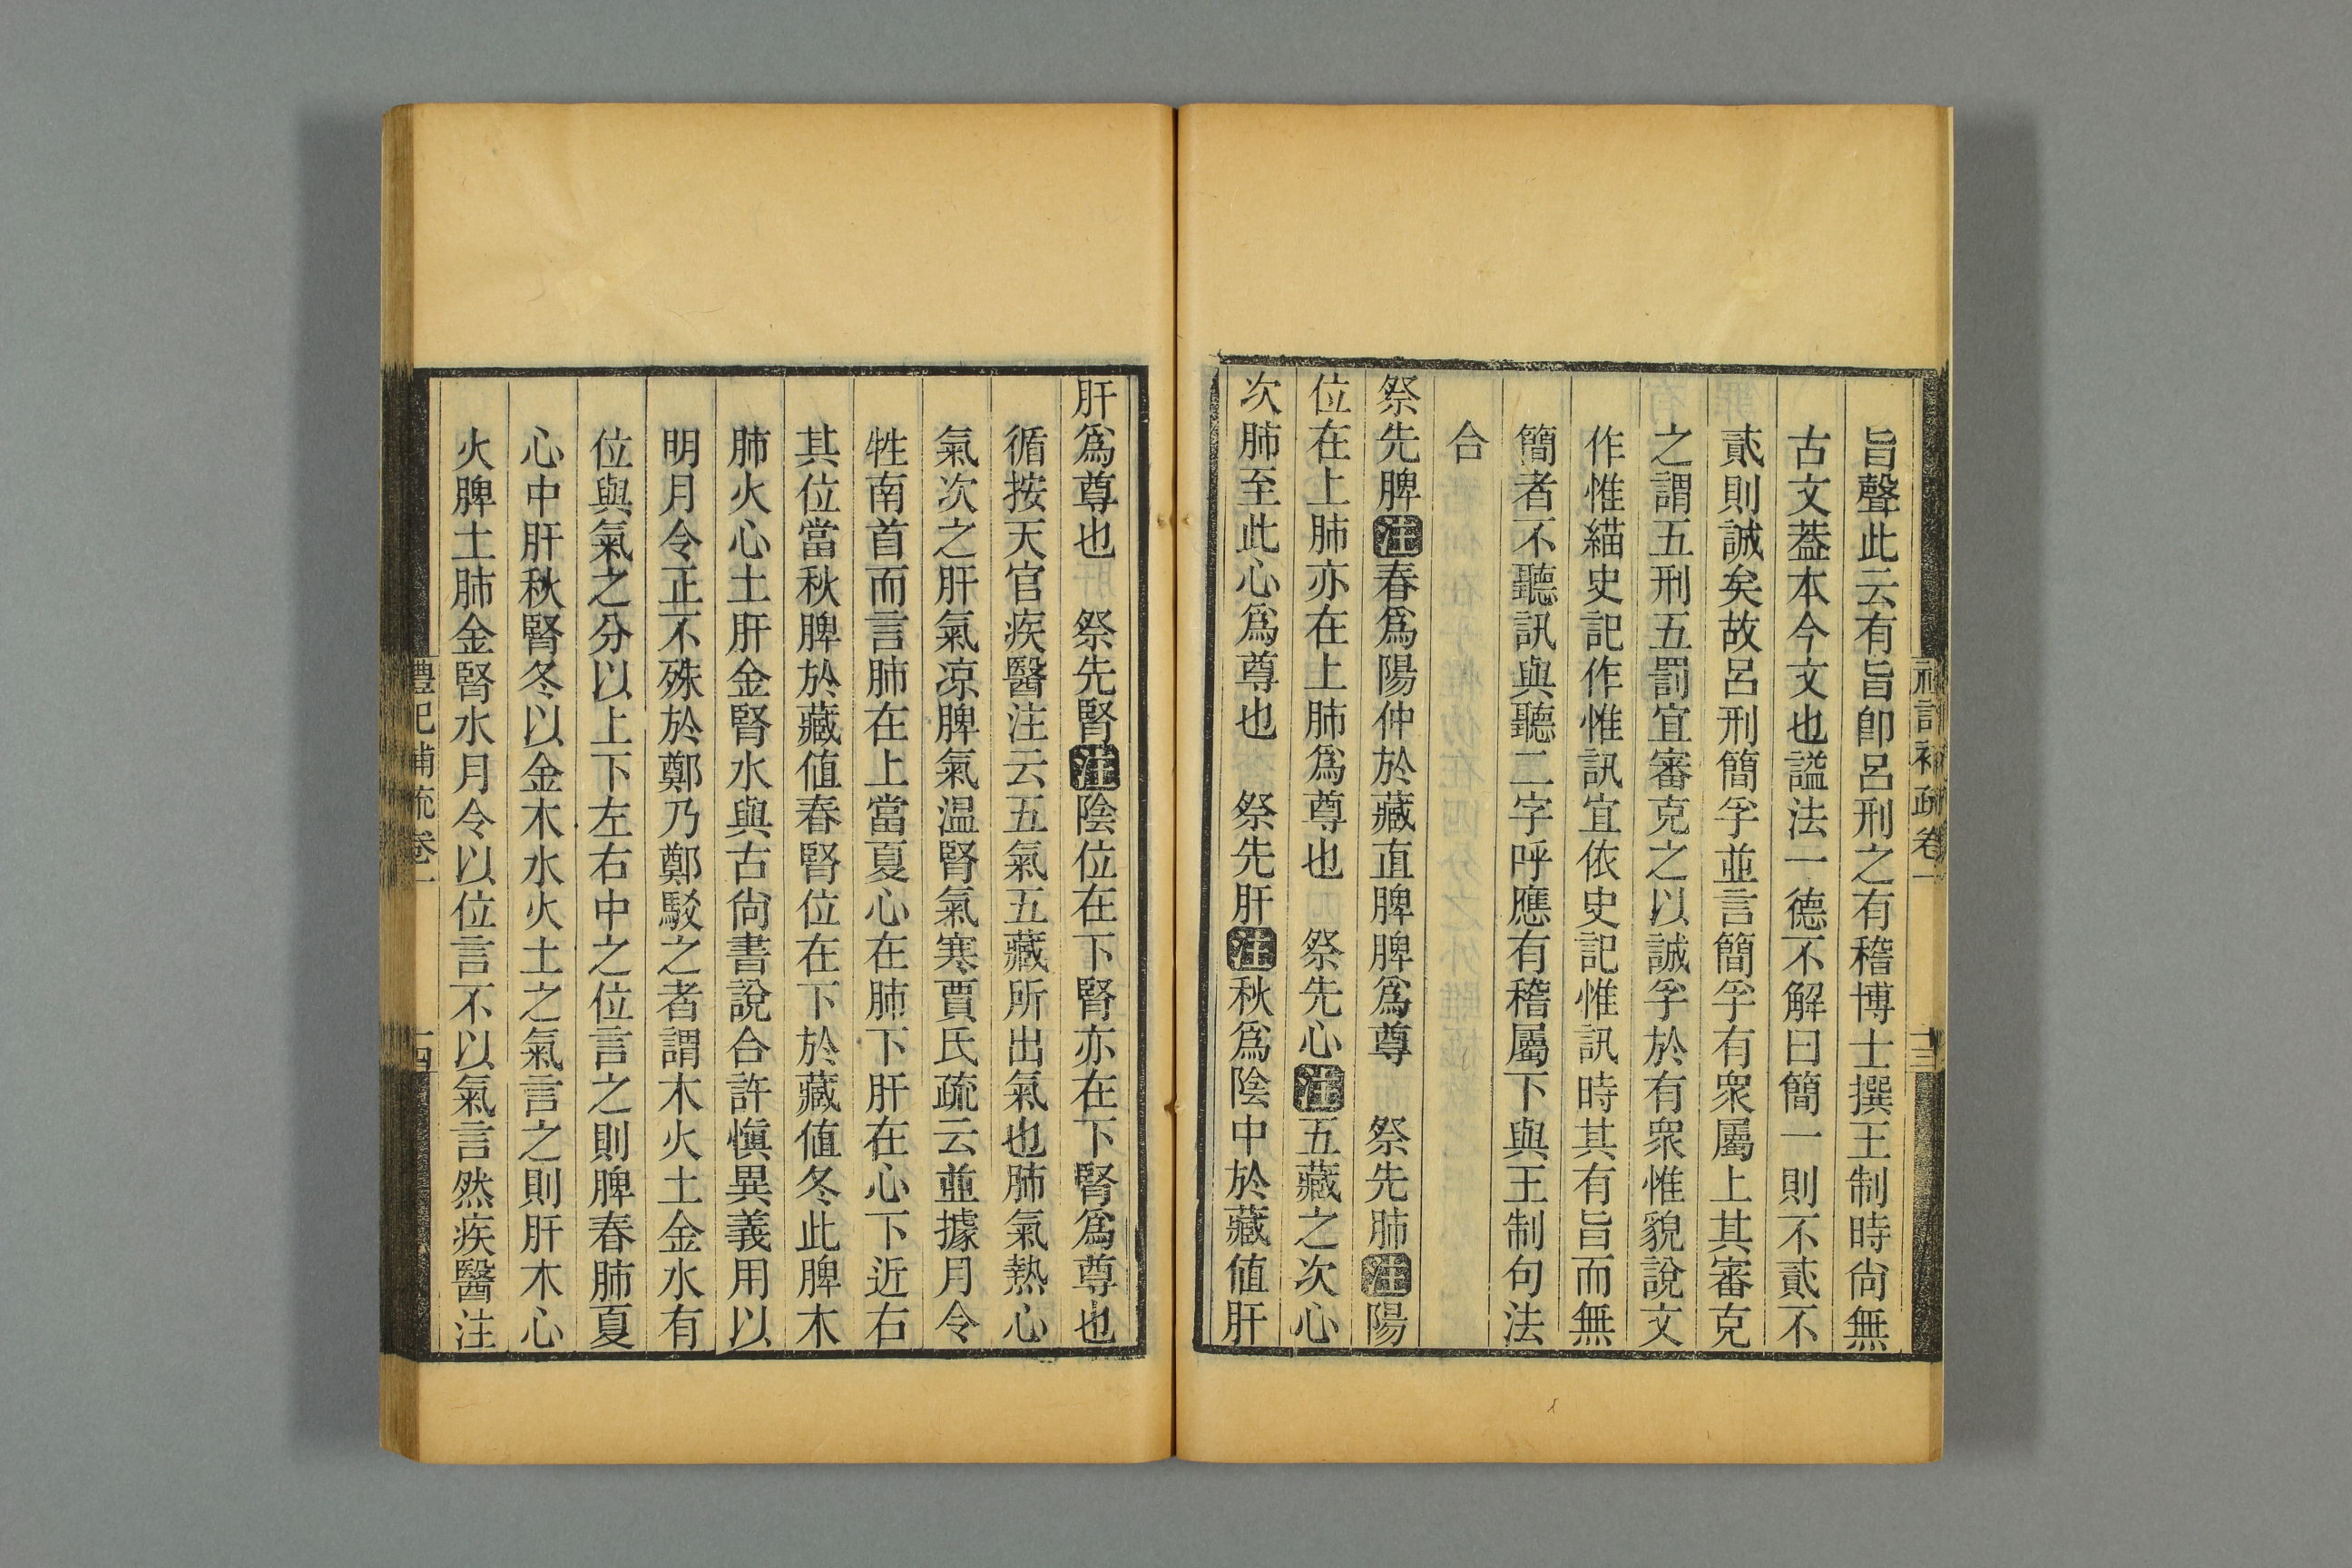 旨聲此云有旨卽呂刑之有稽博士撰王制時尙無
古文葢本今文也謚法一德不解曰簡一則不貳不
貳則誠矣故呂刑簡孚並言簡孚有衆屬上其審克
之謂五刑五罰宜審克之以誠孚於有衆惟貌說文
作惟緢史記作惟訊宜依史記惟訊時其有旨而無
簡者不聽訊與聽二字呼應有稽屬下與王制句法
合
祭先脾注春爲陽仲於藏直脾脾爲尊　祭先肺注陽
位在上肺亦在上肺爲尊也　祭先心注五藏之次心
次肺至此心爲尊也　祭先肝注秋爲陰中於藏值肝
肝爲尊也　祭先腎注陰位在下腎亦在下腎爲尊也
循按天官疾醫注云五氣五藏所出氣也肺氣熱心
氣次之肝氣凉脾氣溫腎氣寒賈氏疏云並據月令
牲南首而言肺在上當夏心在肺下肝在心下近右
其位當秋脾於藏值春腎位在下於藏值冬此脾木
肺火心土肝金腎水與古尙書說合許愼異義用以
明月令正不殊於鄭乃鄭駁之者謂木火土金水有
位與氣之分以上下左右中之位言之則脾春肺夏
心中肝秋腎冬以金木水火土之氣言之則肝木心
火脾土肺金腎水月令以位言不以氣言然疾醫注
禮記補疏卷一
十四